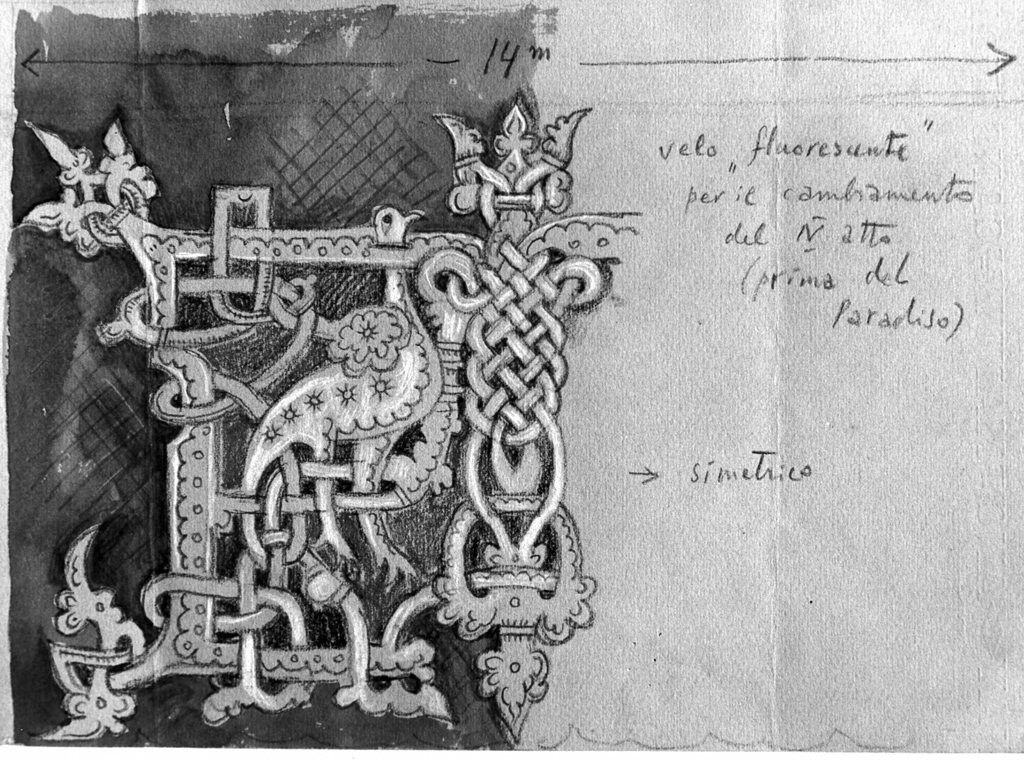 14 m
velo "fluorescente"
per il cambiamento
del IV atto
(prima del
Paradiso)
→ simetrico